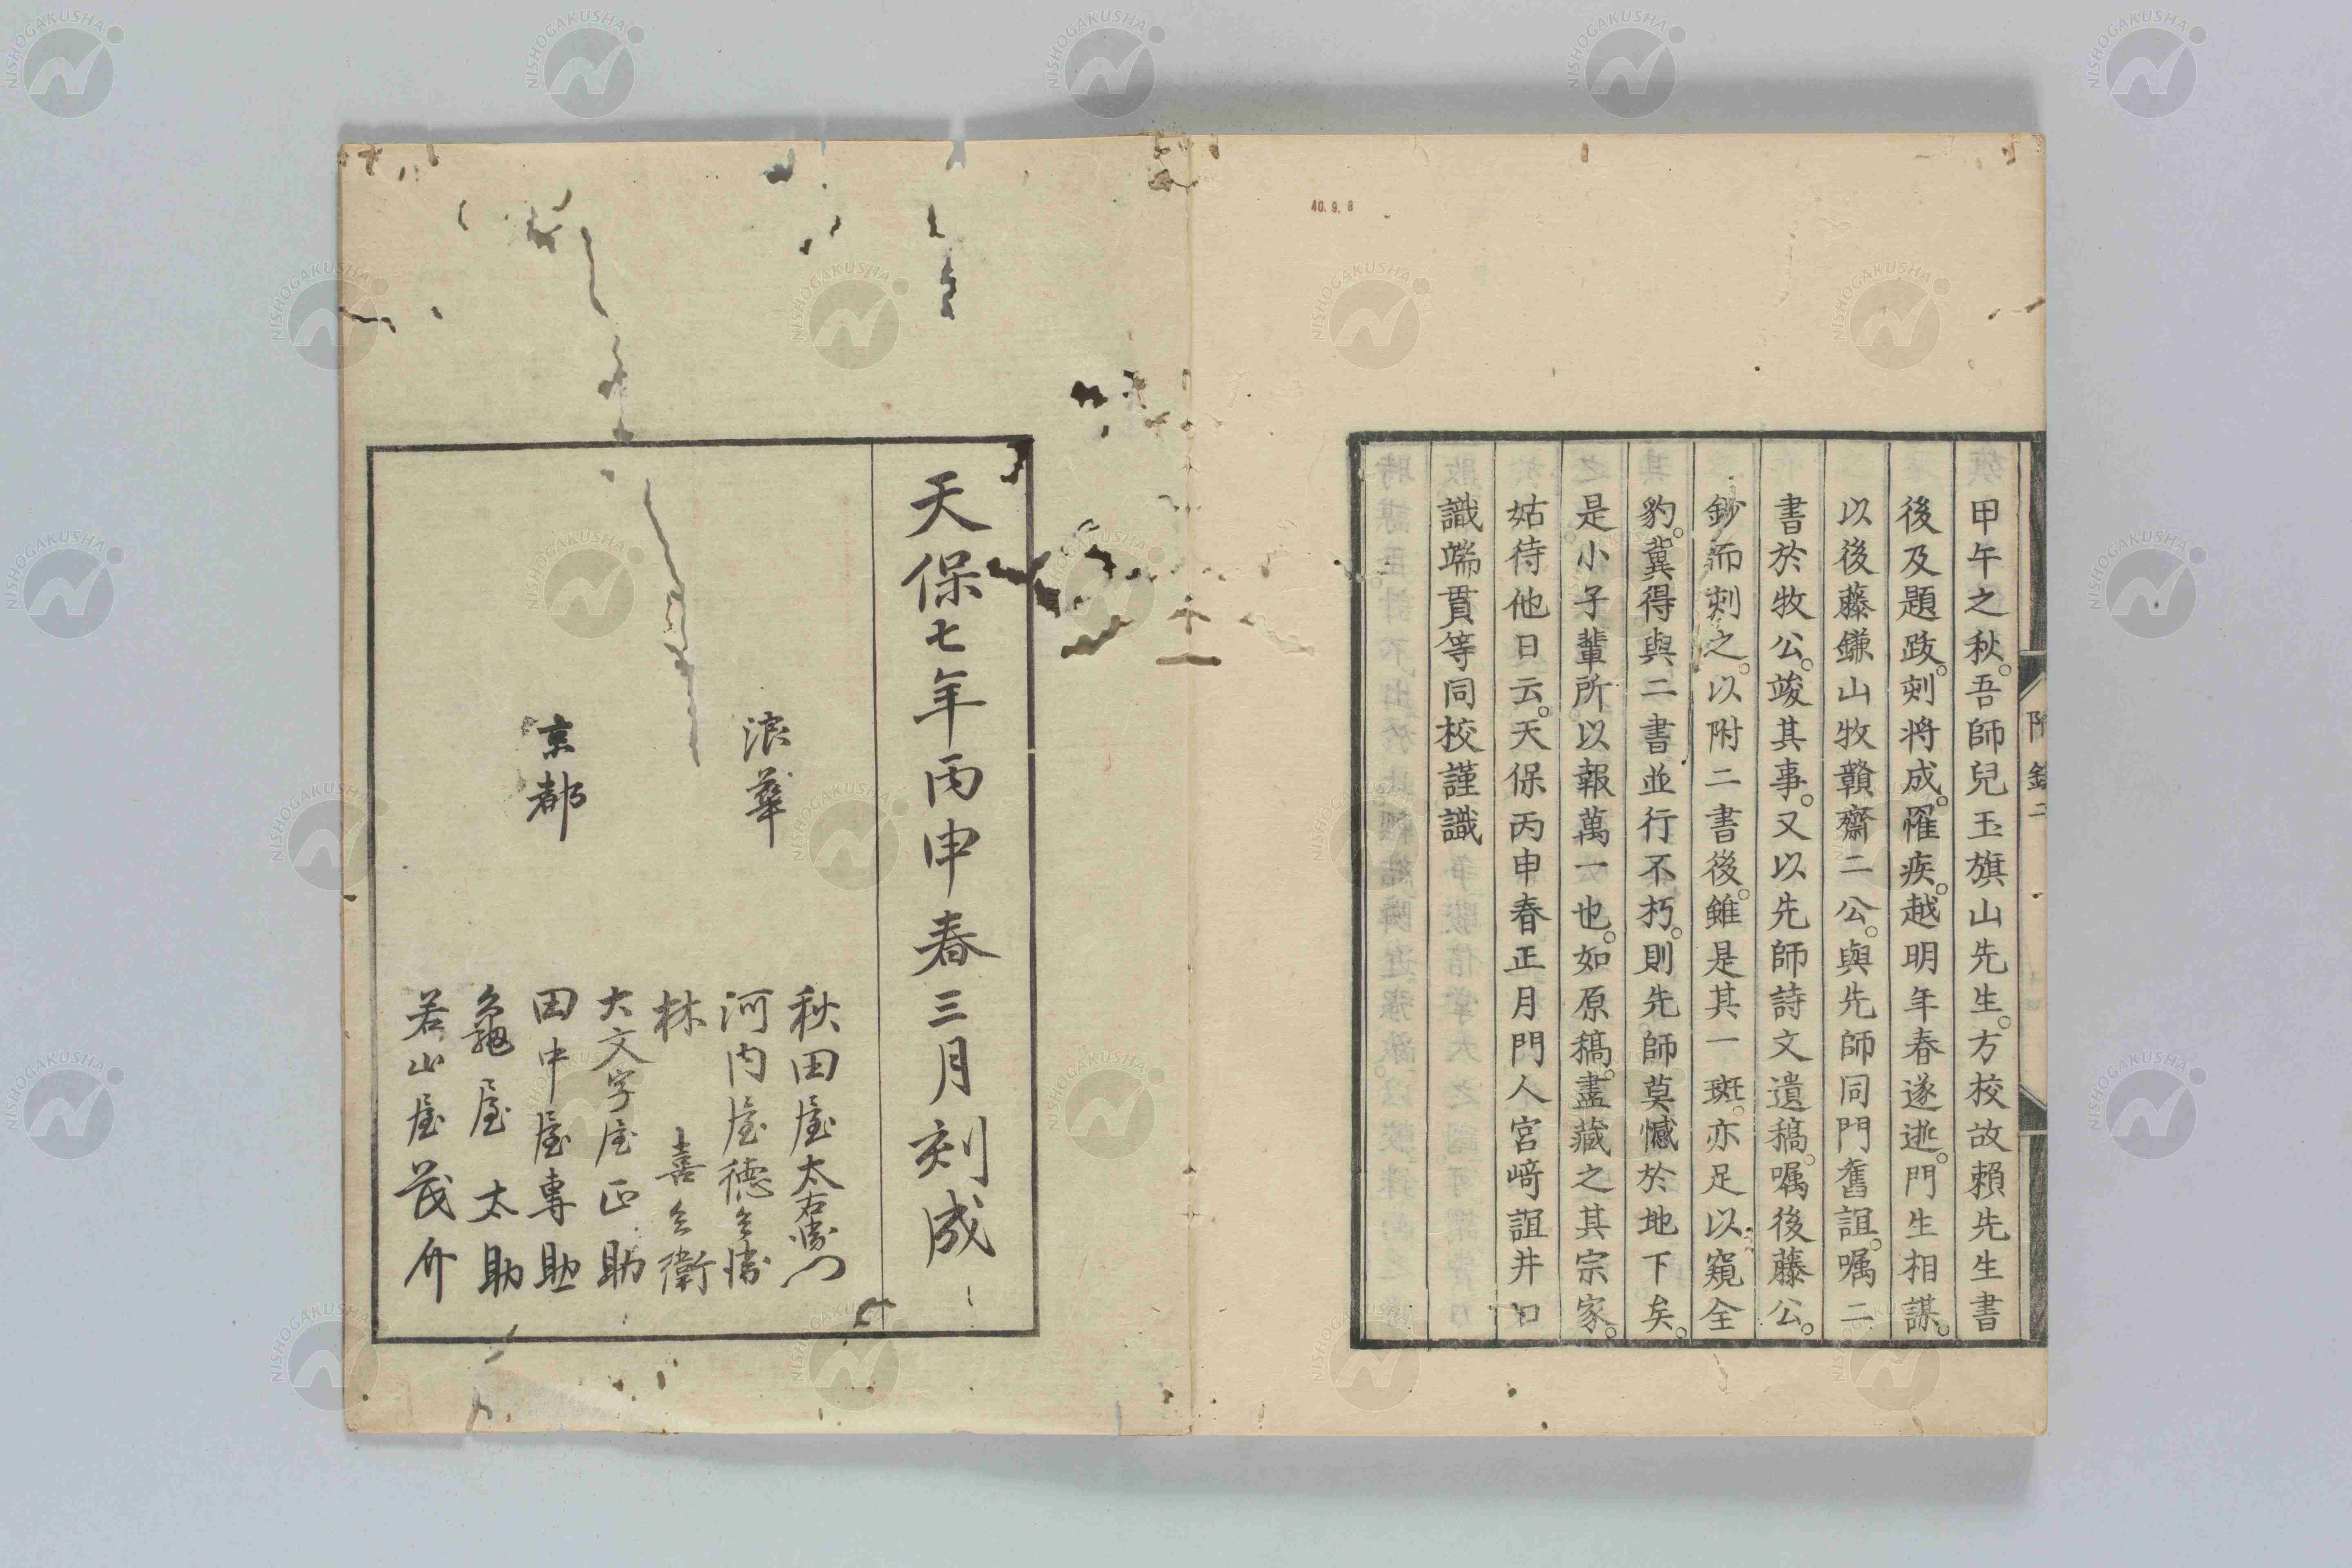 40.9.8
甲午之秋。吾師兒玉旗山先生。方校故賴先生書
後及題跋。刻將成。罹疾。越明年春遂逝。門生相謀。
以後藤鎌山牧贛齋二公。與先師同門舊誼。嘱二
書於牧公。竣其事。又以先師詩文遺稿。嘱後藤公。
鈔而刺之。以附二書後。雖是其一斑。亦足以窺全
豹。冀得與二書並行不朽。則先師莫憾於地下矣。
是小子輩所以報萬一也。如原稿。盡藏之其宗家。
姑待他日云。天保丙申春正月門人宮﨑誼井口
識端貫等同校謹識
附錄二
天保七年丙申春三月刻成
浪華
秋田屋太右衛門
河内屋德兵衛
林喜兵衛
京都
大文字屋正助
田中屋專助
龜屋太助
若山屋茂介
NISHOGAKUSHA